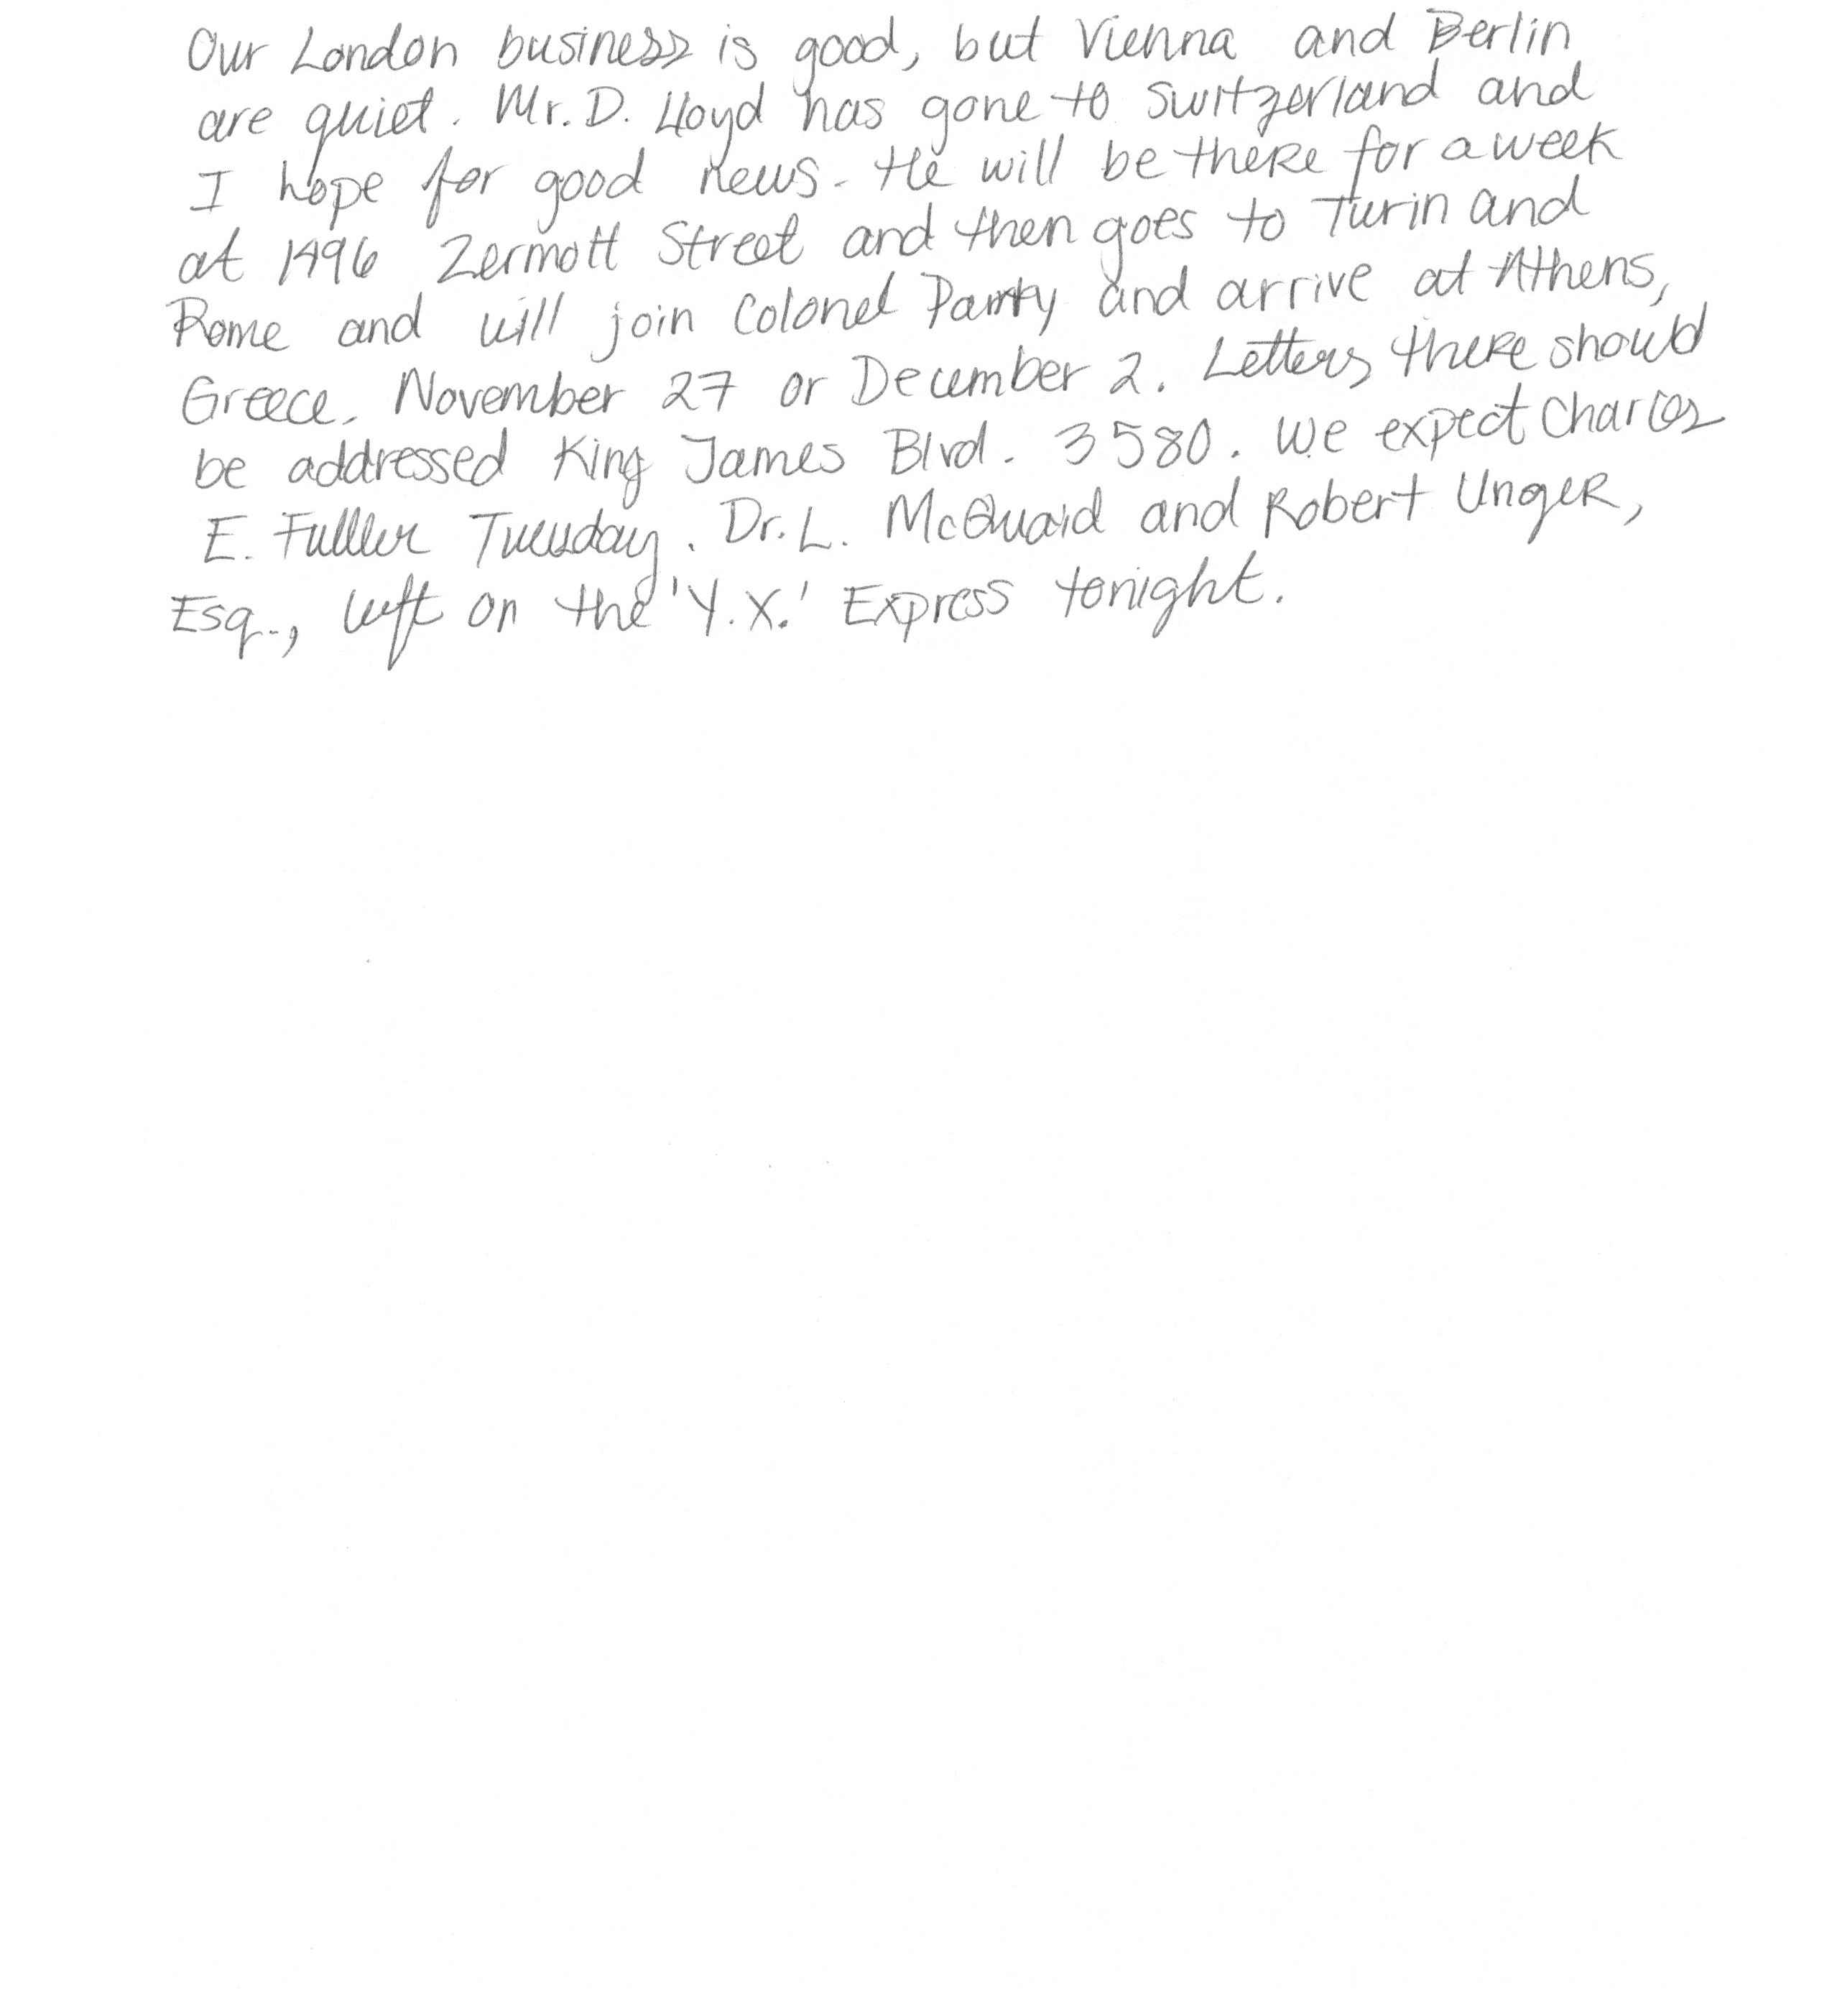 Our London business is good, but Vienna and Berlin
are quiet. Mr. D. Lloyd has gone to Switzerland and
I hope for good news. He will be there for a week
at 1496 Zermott Street and then goes to Turin and
Rome and will join Colonel Parry and arrive at Athens,
Greece, November 27 or December 2. Letters there should
be addressed King James Blvd. 3580. We expect Charles
E. Fuller Tuesday. Dr. L. McQuaid and Robert Unger,
Esq., left on the 'Y.X.' Express tonight.